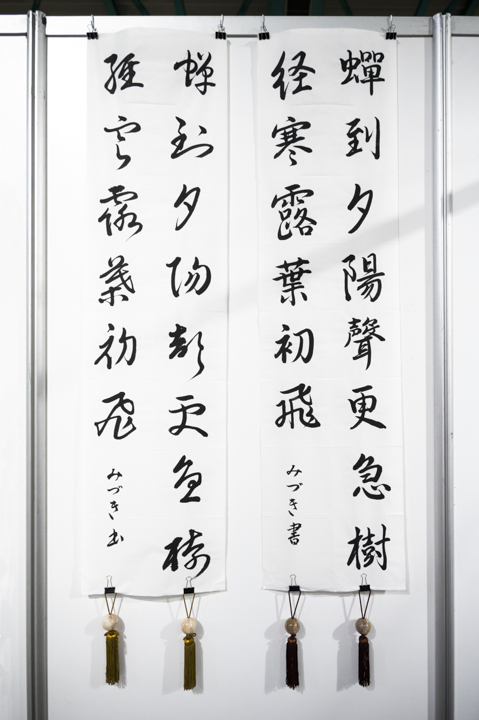 蟬到夕陽聲更急樹
経寒露葉初飛
みづき書
蝉到夕陽聲更急樹
経寒露葉初飛
みづき書